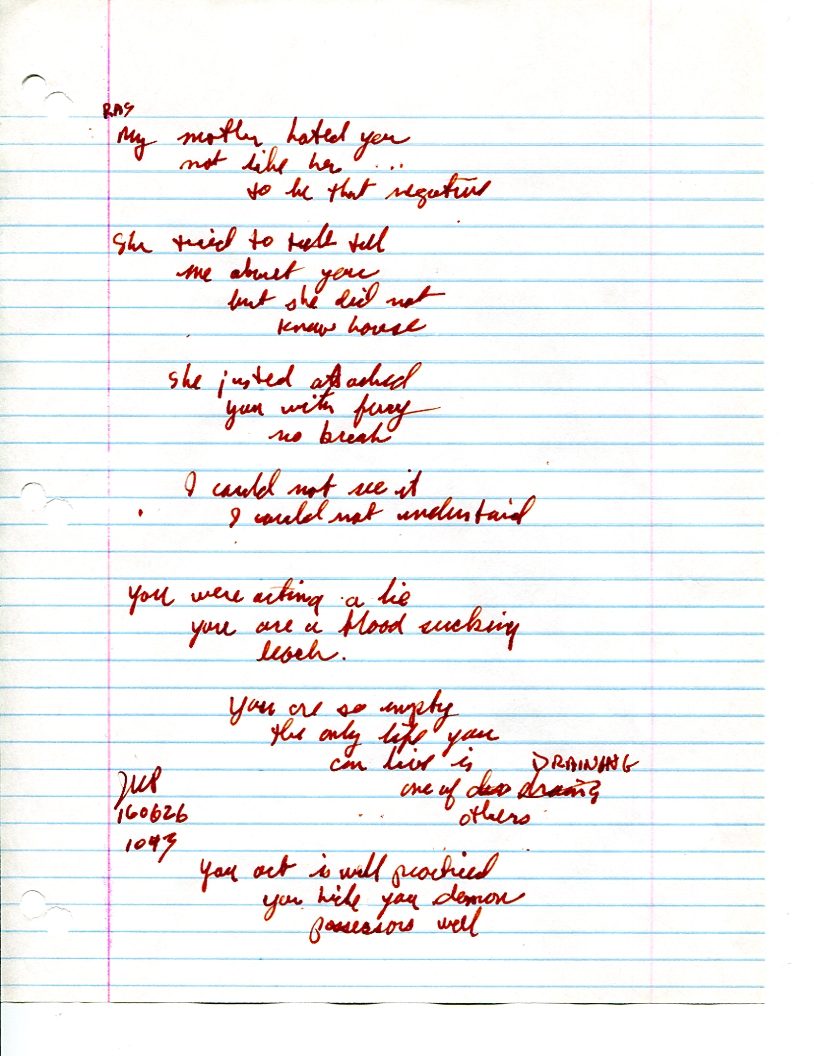 RAS
My mother hated you
not like her ...
to be that negative
She tried to tell tell
me about you
but she did not
know house
She justed attached
you with fury
no break
I could not see it
I could not understaid
you were acting a lie
you are a blood sucking
leach.
You are so empty
the only life you
can live is DRAINING
one of
others
JMP
160626
1043
You act is well practiced
you hide you demon
possessors well